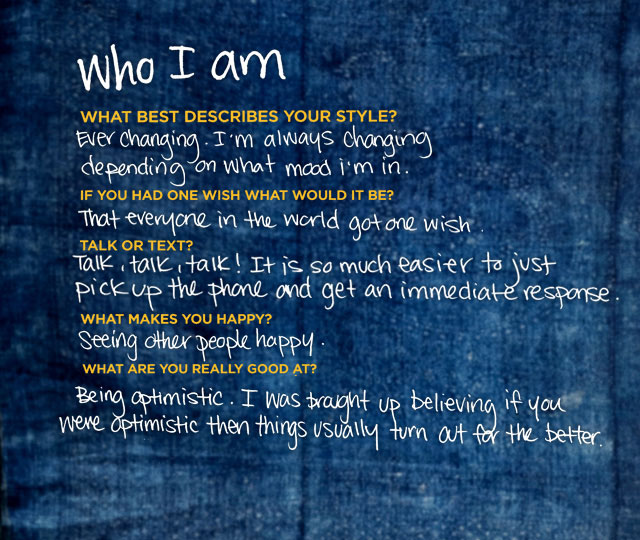 Who I am
WHAT BEST DESCRIBES YOUR STYLE?
Ever changing. I'm always changing
depending on what mood i'm in.
IF YOU HAD ONE WISH WHAT WOULD IT BE?
That everyone in the world got one wish.
TALK OR TEXT?
Talk, talk, talk! It is so much easier to just
pick up the phone and get an immediate response.
WHAT MAKES YOU HAPPY?
Seeing other people happy.
WHAT ARE YOU REALLY GOOD AT?
Being optimistic. I was braught up believing if you
were optimistic then things usually turn out for the better.